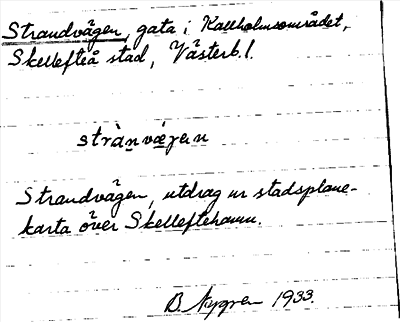 Strandvägen, gata i Kallholmsområdet,
Skellefteå stad, Västerb. l.
stràṇvǽgen
Strandvägen, utdrag ur stadsplane-
karta över Skelleftehamn.
B. Nygren 1933.